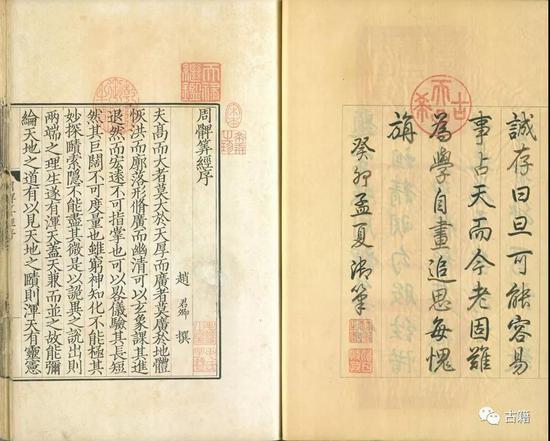 誠存曰旦可能容易
事占天而今老固難
為學自畫追思每愧
旃
癸卯孟夏御筆
天祿繼鑑
周髀算經序
趙君卿撰
夫髙而大者莫大於天厚而廣者莫廣於地體
恢洪而廓落形脩廣而幽清可以玄象課其進
退然而宏遠不可指掌也可以晷儀驗其長短
然其巨闊不可度量也雖窮神知化不能極其
妙探賾索隱不能盡其微是以詭異之說出則
兩端之理生遂有渾天蓋天兼而並之故能彌
綸天地之道有以見天地之賾則渾天有靈憲
古籍